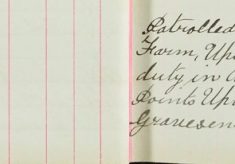 Patrolled
Farm, Ups
duty in
Points Up
Gravesen